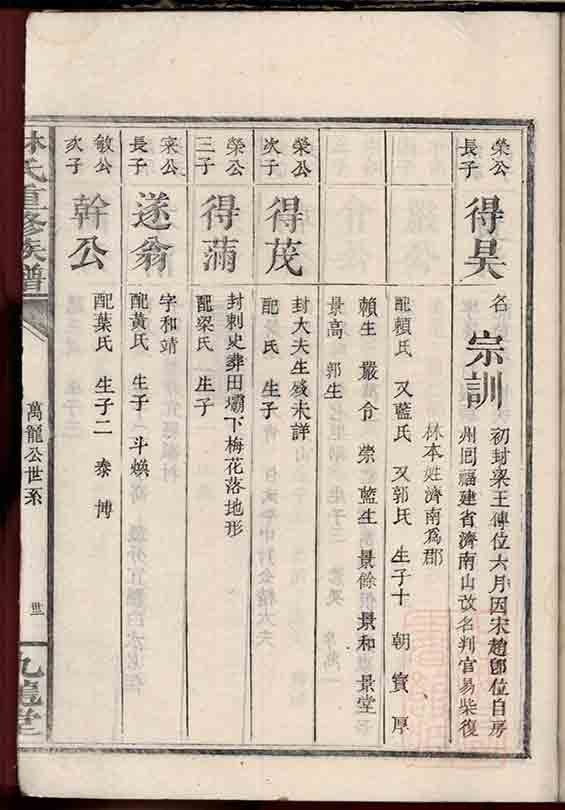 榮公長子
得昊
名宗訓
初封梁王傳位六月因宋趙卽位自房
州囘福建省濟南山改名判官易柴復
林本姓濟南爲郡
配賴氏 又藍氏 又郭氏 生子十 朝 賓 厚
賴生 嚴 令 崇 藍生 景餘 景和 景堂
景高 郭生
榮公次子
得茂
封大夫生殁未詳
配 氏 生子
榮公三子
得蒲
封刺史葬田壩下梅花落地形
配梁氏 生子
宷公長子
遂翁
字和靖
配黃氏 生子一 斗煥
敏公次子
幹公
配葉氏 生子二 泰 博
林氏重修族譜
萬龍公世系
世
九龍堂